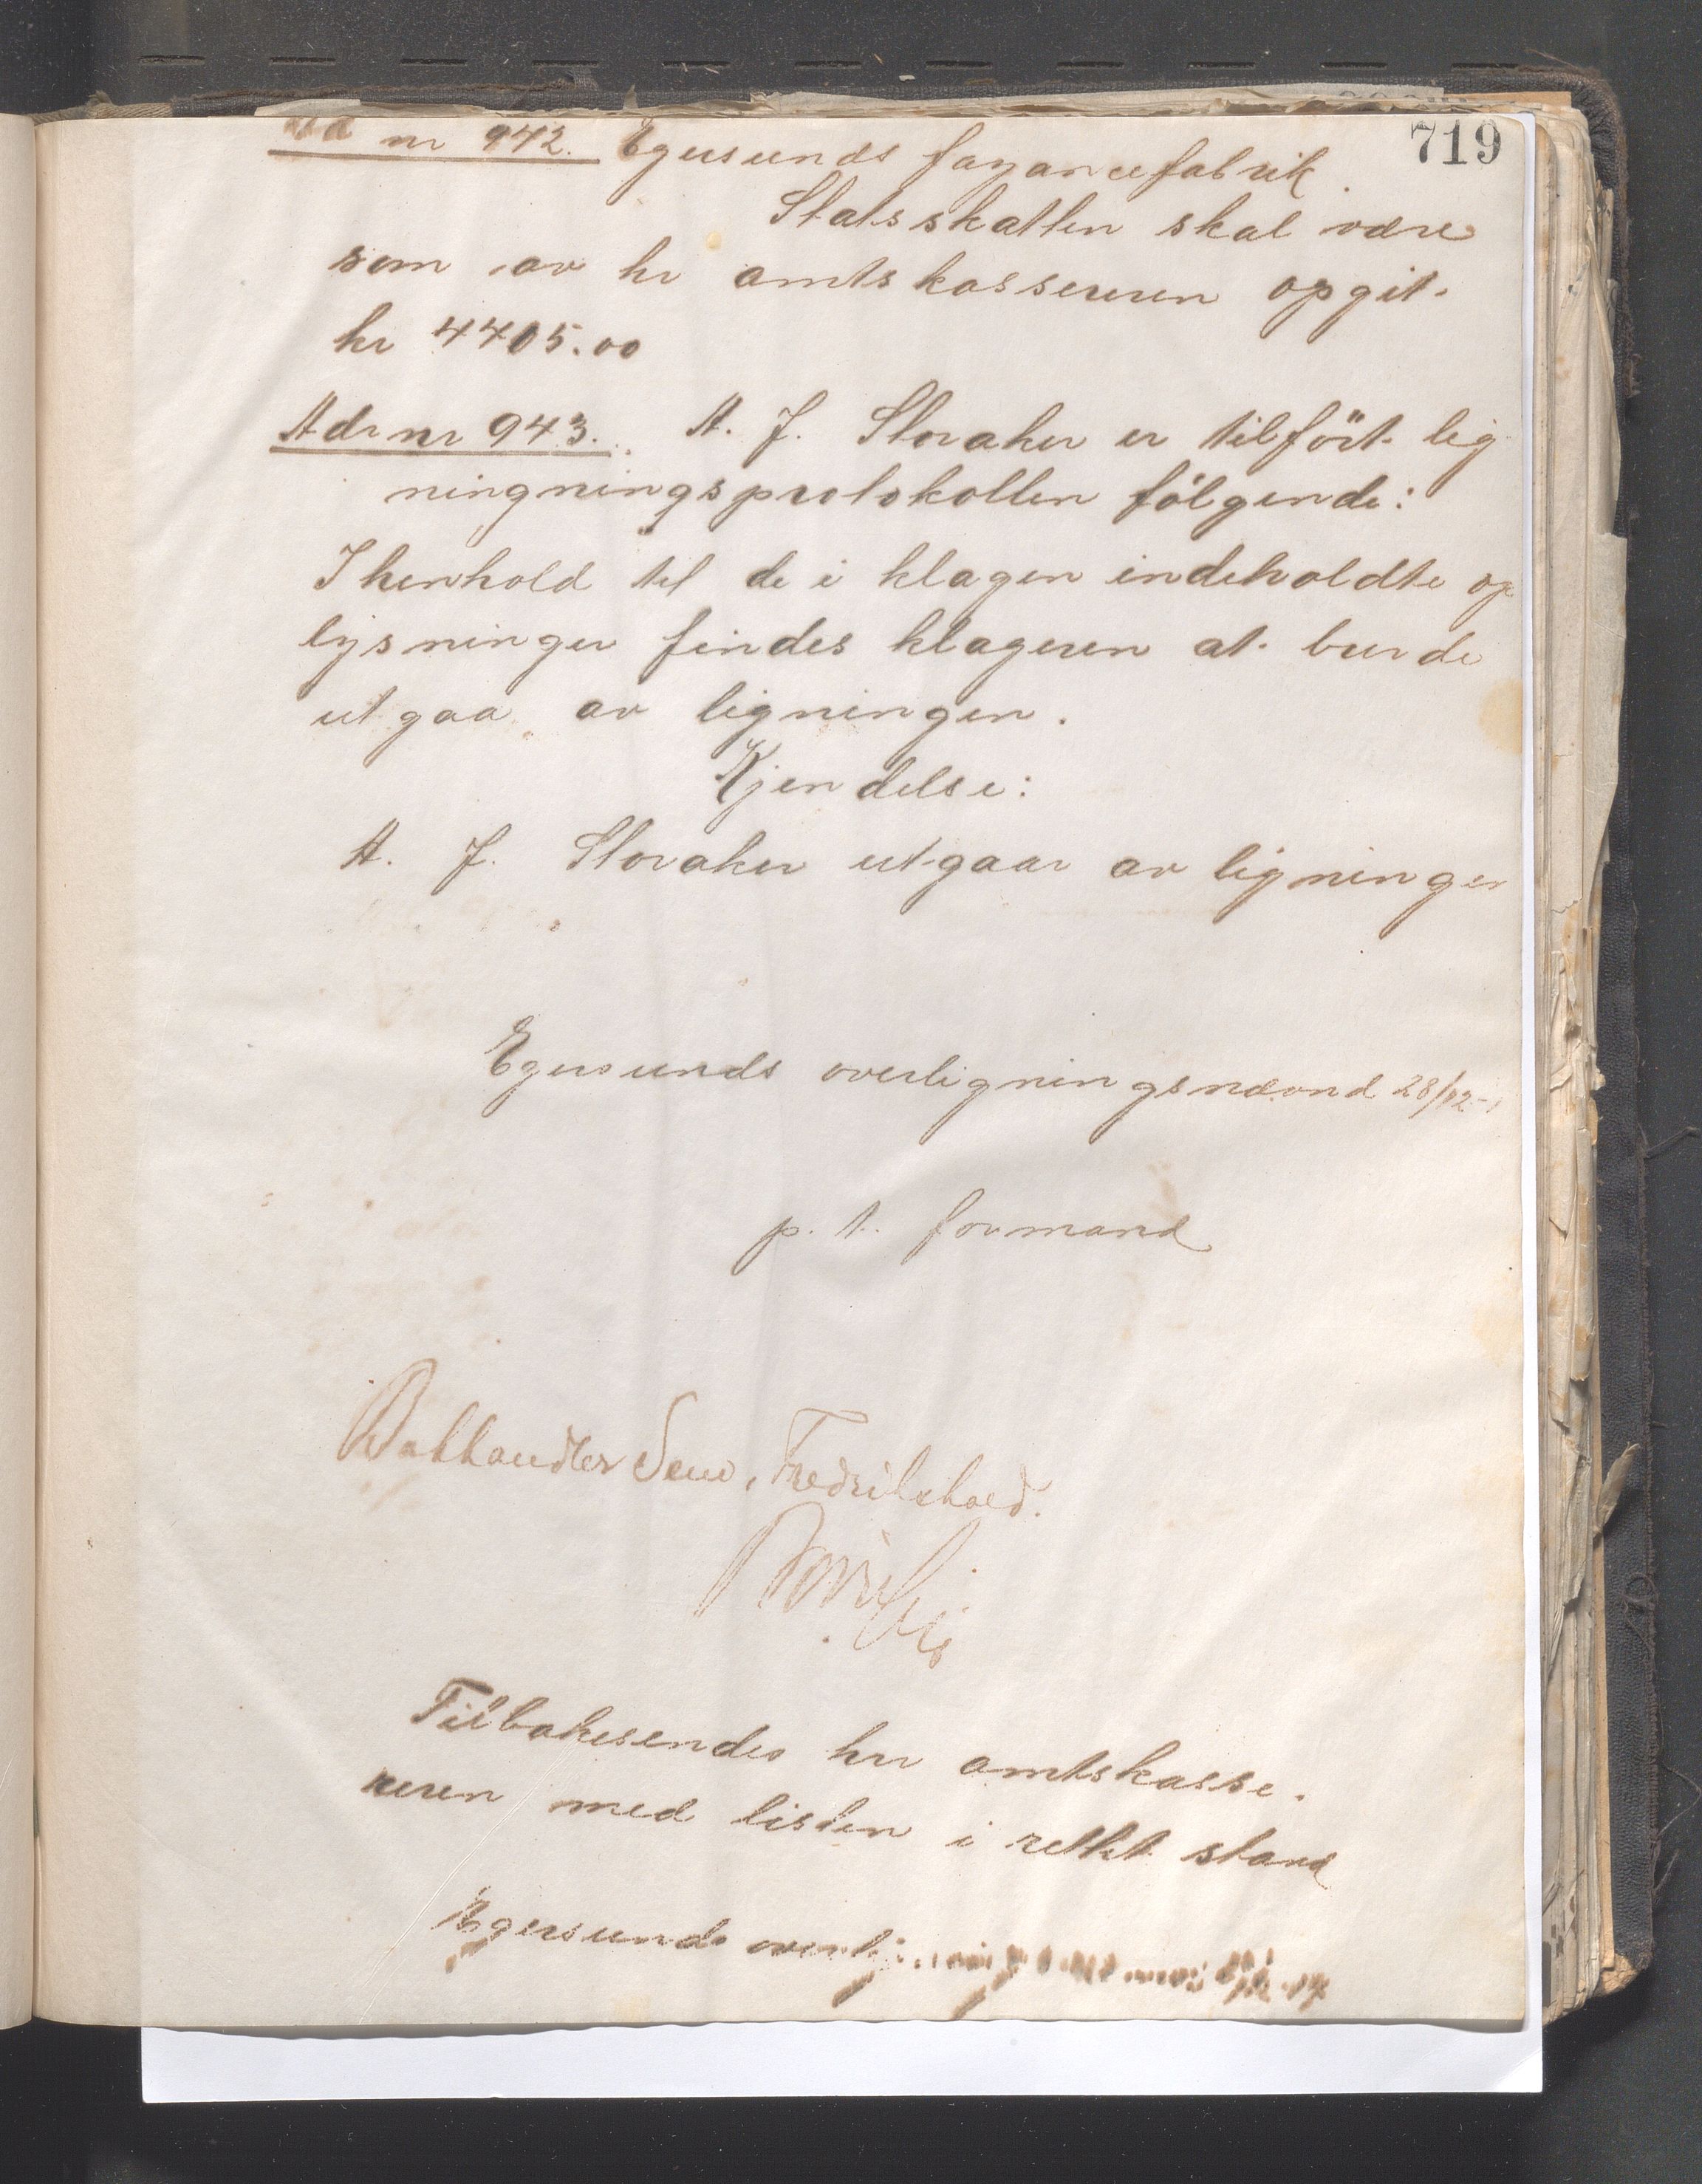 719
Ad nr 942. Egersunds fayancefabrik.
Statsskatten skal være
som av hr amtskassereren opgit.
kr 4405.00
Adr nr 943. A. J. Storaker er tilført lig
ningningsprotokollen følgende:
I henhold til de i klagen indeholdte op
lysninger findes klageren at burde
utgaa av ligningen.
Kjendelse:
A. J. Storaker utgaar av ligningen
Egersunds overligningsnævnd 28/12-1
p. t. formand
Fredrikshald.
Tilbakesendes hr amtskasse.
reren med listen i rettet stand
Egersunds